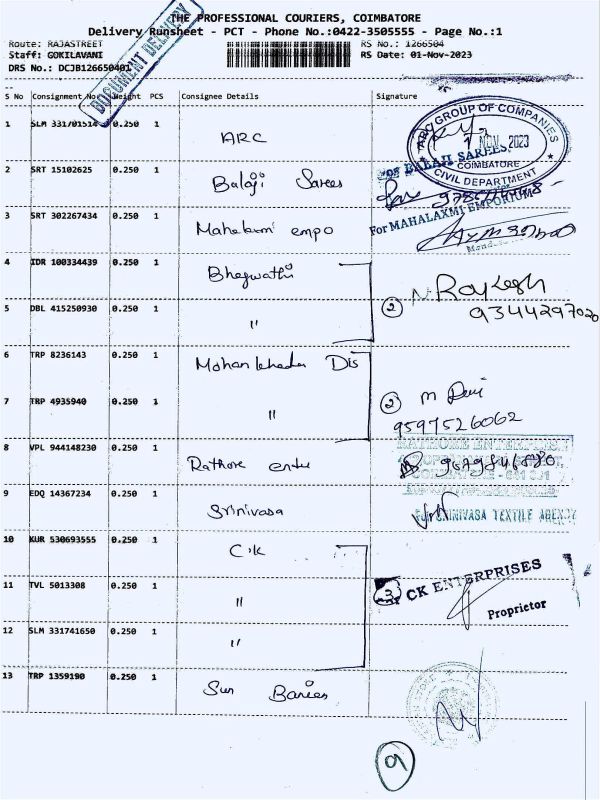 THE PROFESSIONAL COURIERS, COIMBATORE
Delivery Runsheet - PCT - Phone No.:0422-3505555 - Page No.:1
Route: RAJASTREET RS No.: 1266504
Staff: GOKILAVANI RS Date: 01-Nov-2023
DRS No.: DCJB126650401
DOCUMENT DELIVERY
S No Consignment No Weight PCS Consignee Details Signature
1 SLM 331701514 0.250 1 ARC
ARC GROUP OF COMPANIES
NOV 2023
COIMBATORE
CIVIL DEPARTMENT
2 SRT 15102625 0.250 1 Balaji Sarees
For BALAJI SAREES
3 SRT 302267434 0.250 1 Mahalaxmi empo
For MAHALAXMI EMPORIUM
4 IDR 100334439 0.250 1 Bhagwathi
5 DBL 415250930 0.250 1 "
2 N. Rajkesh
9344297020
6 TRP 8236143 0.250 1 Dis
7 TRP 4935940 0.250 1 "
2 M Devi
9597526062
8 VPL 944148230 0.250 1 Rathore enter
RATHORE ENTERPRISES
9 EDQ 14367234 0.250 1 Srinivasa
For SRINIVASA TEXTILE AGENCY
10 KUR 530693555 0.250 1 C.K
11 TVL 5013308 0.250 1 "
3 CK ENTERPRISES
Proprietor
12 SLM 331741650 0.250 1 "
13 TRP 1359190 0.250 1 Sun
9